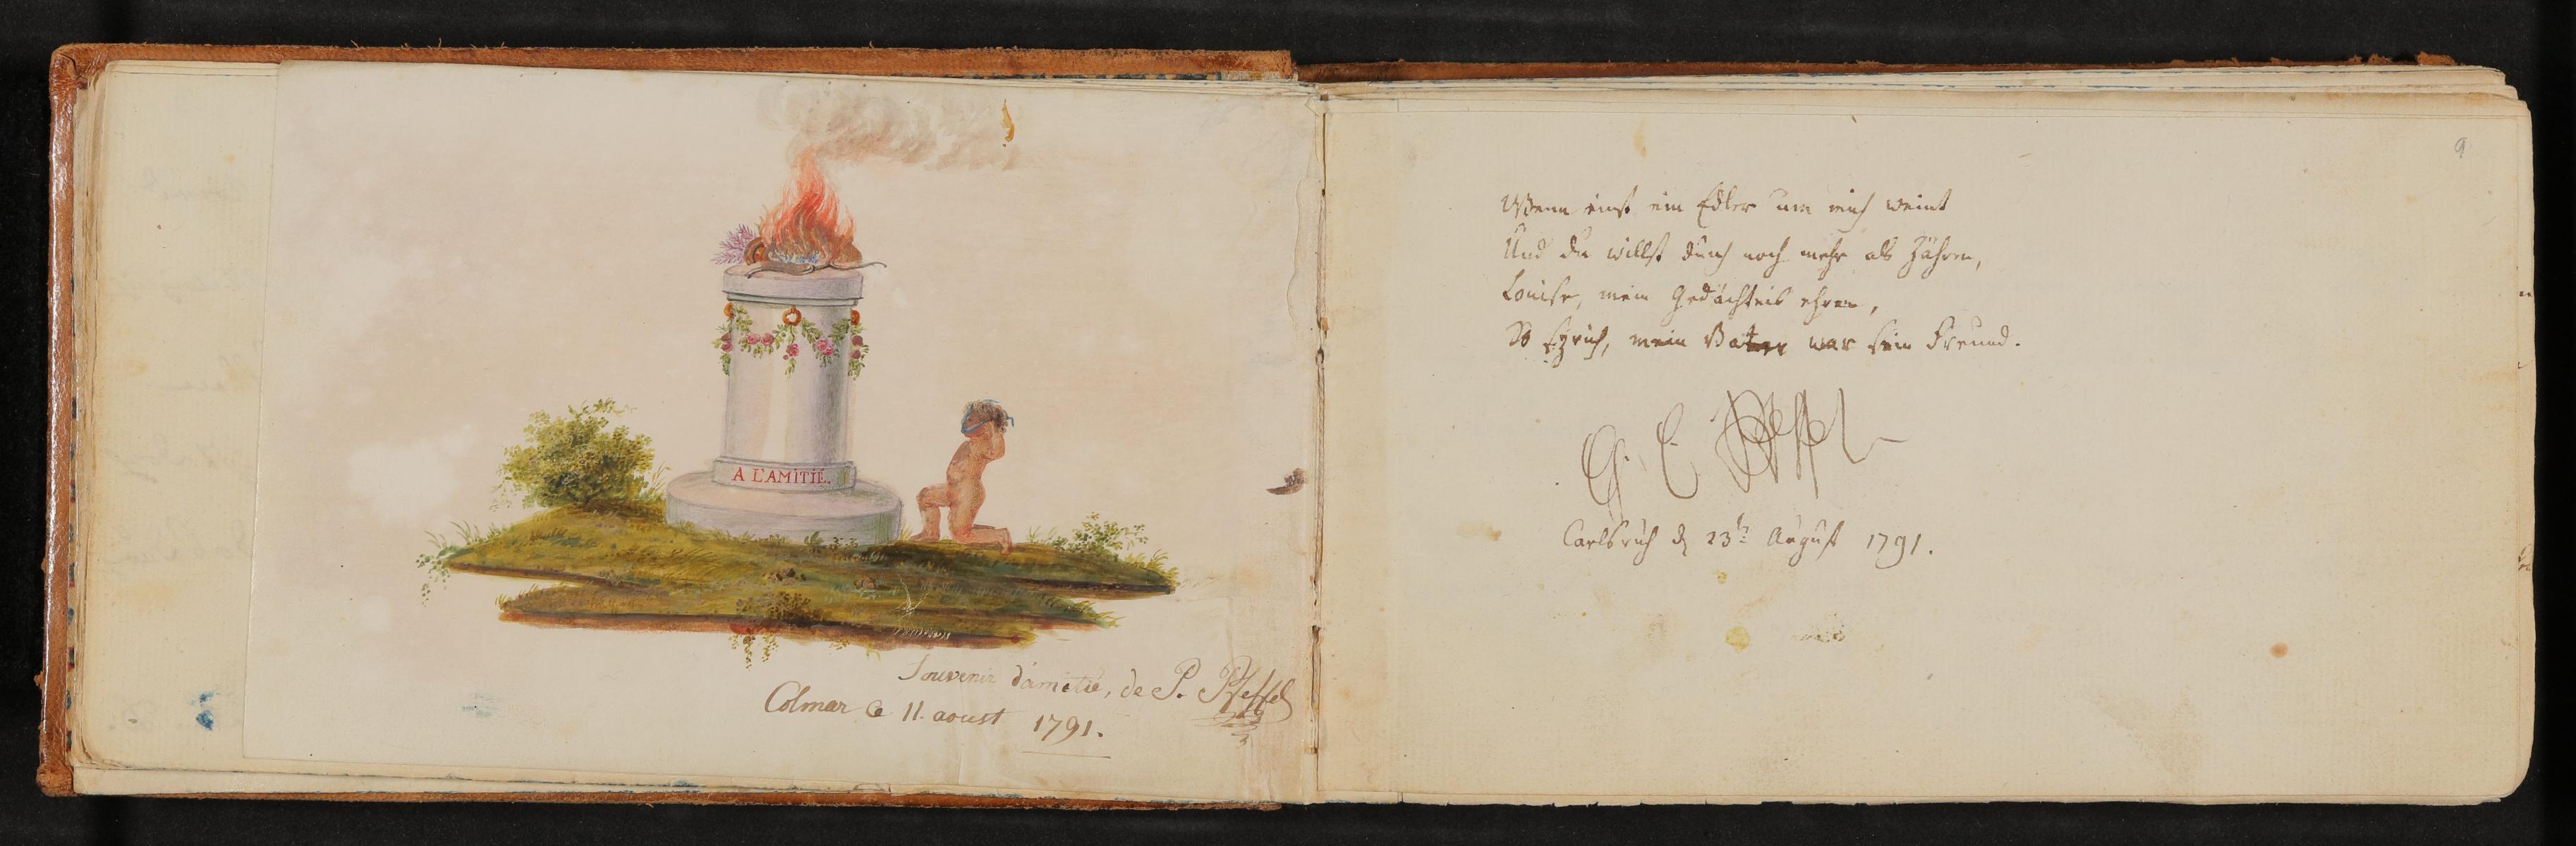 A L'AMITIÉ.
Souvenir d'amitié, de P. Pfeffel
Colmar le 11. aoust 1791.
9
Wenn einst ein Edler um mich weint
Und du willst durch noch mehr als Zähren,
Louise, mein Gedächtnis ehren,
So sprich, mein Vater war sein Freund.
G. C. Pfeffel
Carlsruh d 23t August 1791.